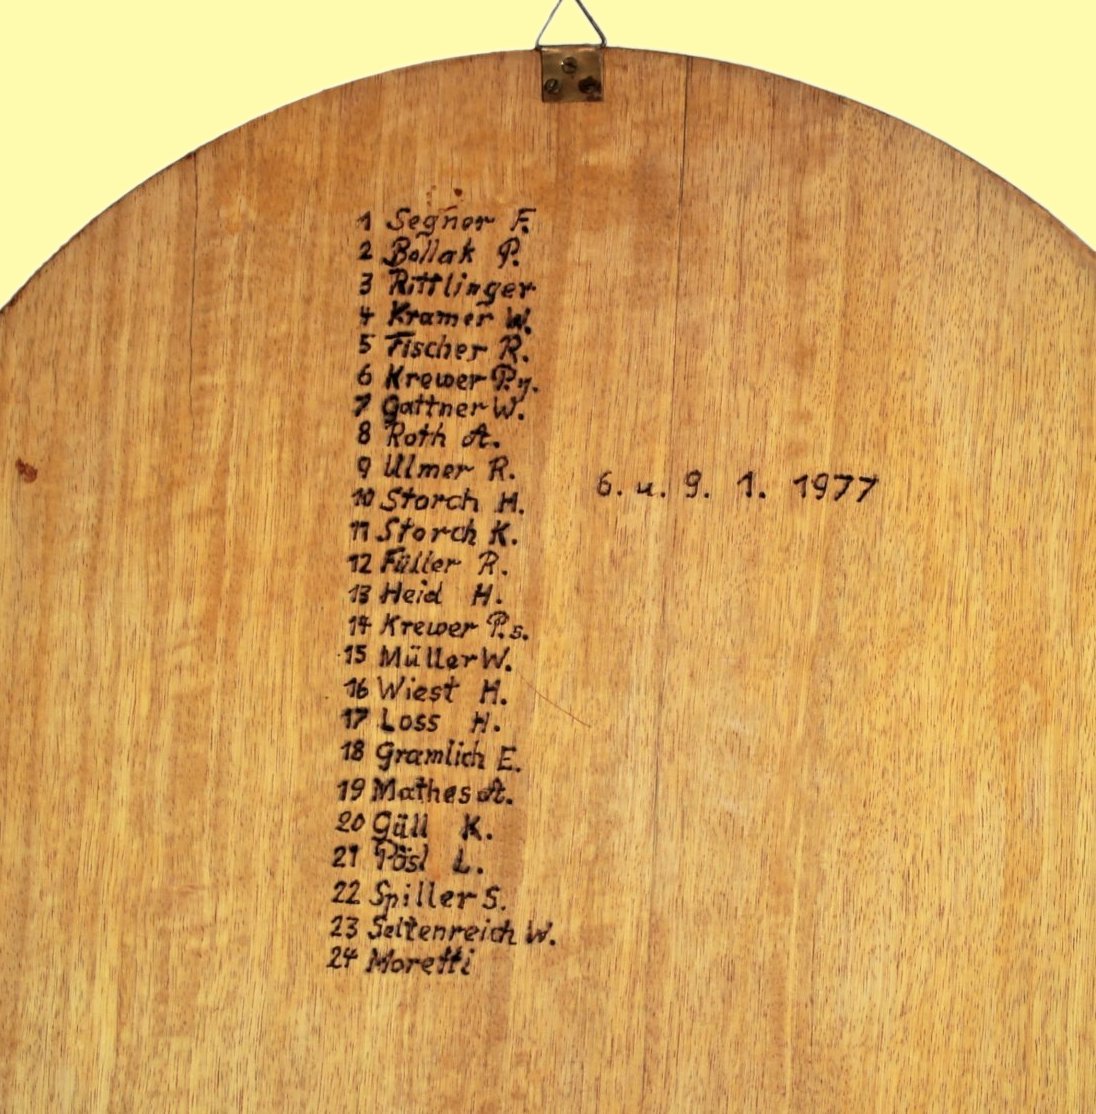 1 Segner F.
2 Bollak P.
3 Rittlinger
4 Kramer W.
5 Fischer R.
6 Krewer P.j.
7 Gattner W.
8 Roth A.
9 Ulmer R.
10 Storch H.
6. u. 9. 1. 1977
11 Storch K.
12 Füller R.
13 Heid H.
14 Krewer P.s.
15 Müller W.
16 Wiest H.
17 Loss H.
18 Gramlich E.
19 Mathes A.
20 Güll K.
21 Pösl L.
22 Spiller S.
23 Seltenreich W.
24 Moretti